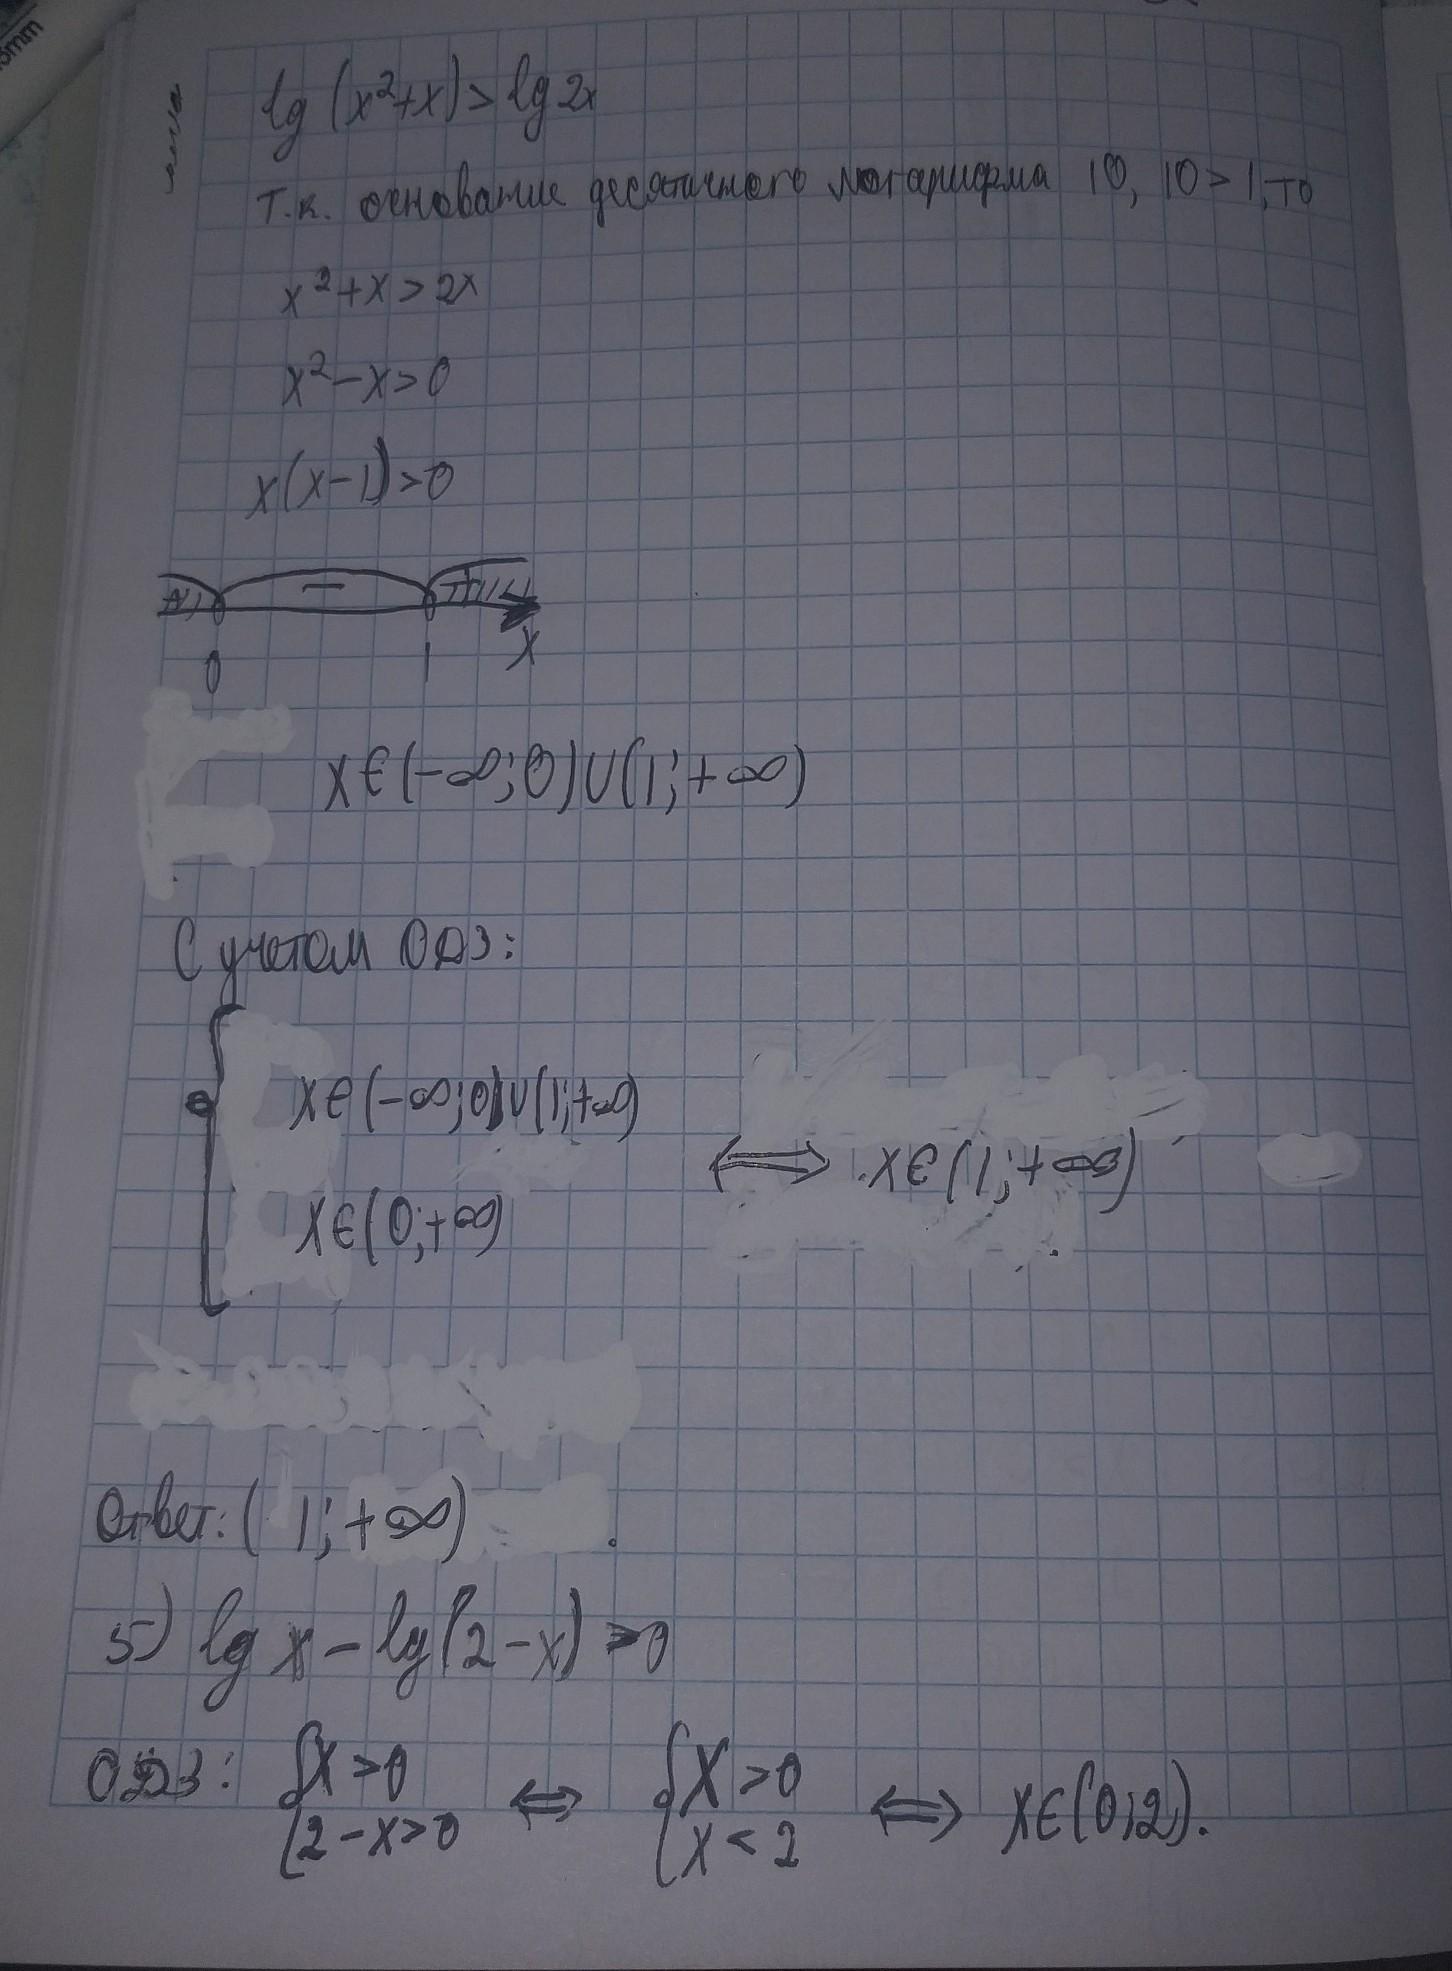 lg (x²+x) > lg 2x
Т.к. основание десятичного логарифма 10, 10 > 1, то
x²+x > 2x
x²-x > 0
x(x-1) > 0
+ - +
0 1 x
x∈(-∞;0)∪(1;+∞)
С учетом ОДЗ:
{ x∈(-∞;0)∪(1;+∞)
x∈(0;+∞) ⟺ x∈(1;+∞)
Ответ: (1;+∞).
5) lg x - lg(2-x) > 0
ОДЗ: { x > 0 ⟺ { x > 0 ⟺ x∈(0;2).
2-x > 0 x < 2